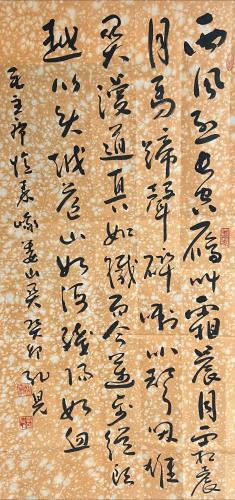 西風烈長空雁叫霜晨月霜晨
月馬蹄聲碎喇叭聲咽雄
關漫道真如鐵而今邁步從頭
越從頭越蒼山如海殘陽如血
毛主席憶秦娥婁山關癸卯